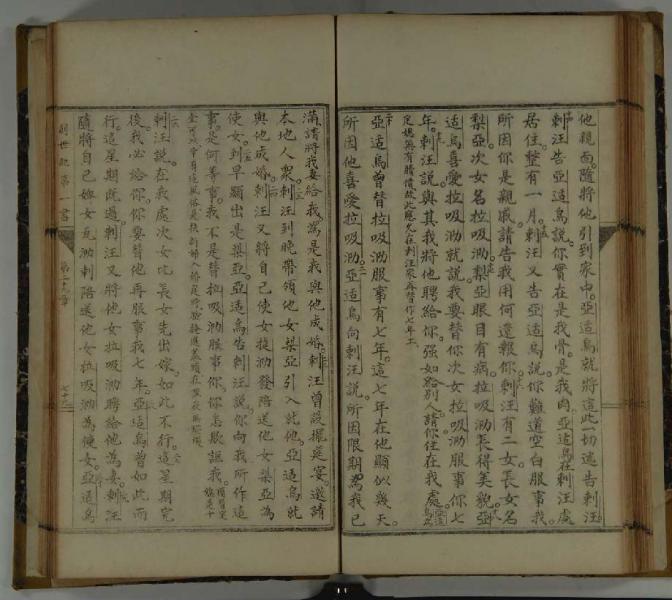 他親面。隨將他引到家中。亞适烏就將這此一切述告剌汪。
剌汪告亞适烏說。你實在是我骨。是我肉。亞适烏在剌汪處
居住。整有一月。剌汪又告亞适烏說。你難道空白服事我。
所因你是親戚。請告我用何還報你。剌汪有二女。長女名
梨亞。次女名拉吸泐。梨亞眼目有病。拉吸泐長得美貌。亞
适烏喜愛拉吸泐。就說。我要替你次女拉吸泐服事你七
年。剌汪說。與其我將他聘給你。强如給別人。請你住在我處。
亞适烏曾替拉吸泐服事有七年。這七年在他顯似幾天。
所因他喜愛拉吸泐。亞适烏向剌汪說。所因限期為我已
滿。請將我妻給我。為是我與他成婚。剌汪曾設擺延宴。邀請
本地人衆。剌汪到晚帶領他女梨亞引入就他。亞适烏就
與他成婚。剌汪又將自己使女提泐發陪送他女梨亞為
使女。到早顯出是梨亞。亞适烏告剌汪說。你向我所作這
事。是何等事。我不是替拉吸泐服事你。你怎欺誑我。
剌汪說。在我處次女比長女先出嫁。如此不行。這星期完
後。我必給你。你要替他再服事我七年。亞适烏曾如此而
行。這星期既過。剌汪又將他女拉吸泐聘給他為妻。剌汪
隨將自己婢女瓦泐剌陪送他女拉吸泐為使女。亞适烏
創世紀第一書
第二十九章
七十九